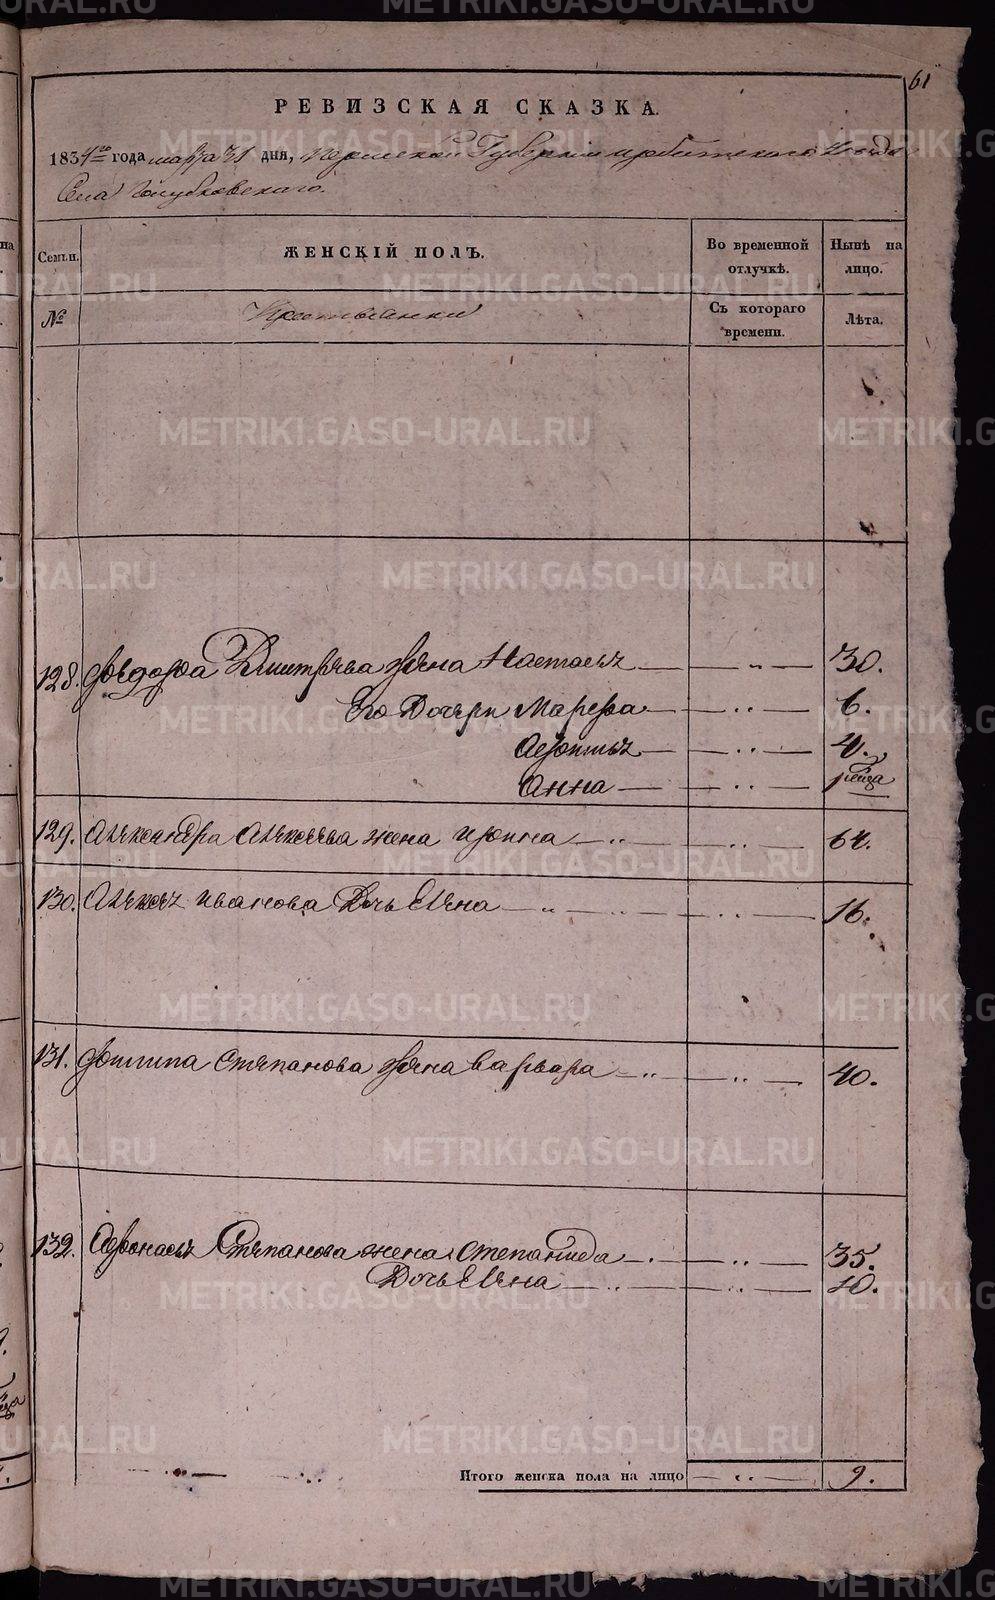 61
РЕВИЗСКАЯ СКАЗКА.
1834го года марта 31 дня, Пермской Губернии Ирбитского Уезда
Села Голубковского.
Семьи. ЖЕНСКІЙ ПОЛЪ. Во временной отлучкѣ. Нынѣ на лицо.
№ Крестьянки Съ котораго времени. Лѣта.
128. Федора Дмитрева жена Настасья — " — 30.
Его Дочери Марефа — " — 6.
Афонасья — " — 4.
Анна — " — 1/2 года
129. Александра Алексеева жена Ирина — " — " — 64.
130. Алексея Иванова Дочь Елена — " — " — 16.
131. Филипа Степанова жена Варвара — " — " — 40.
132. Афонасья Степанова жена Степанида — " — " — 35.
Дочь Елена — " — " — 10.
Итого женска пола на лицо — " — 9.
METRIKI.GASO-URAL.RU